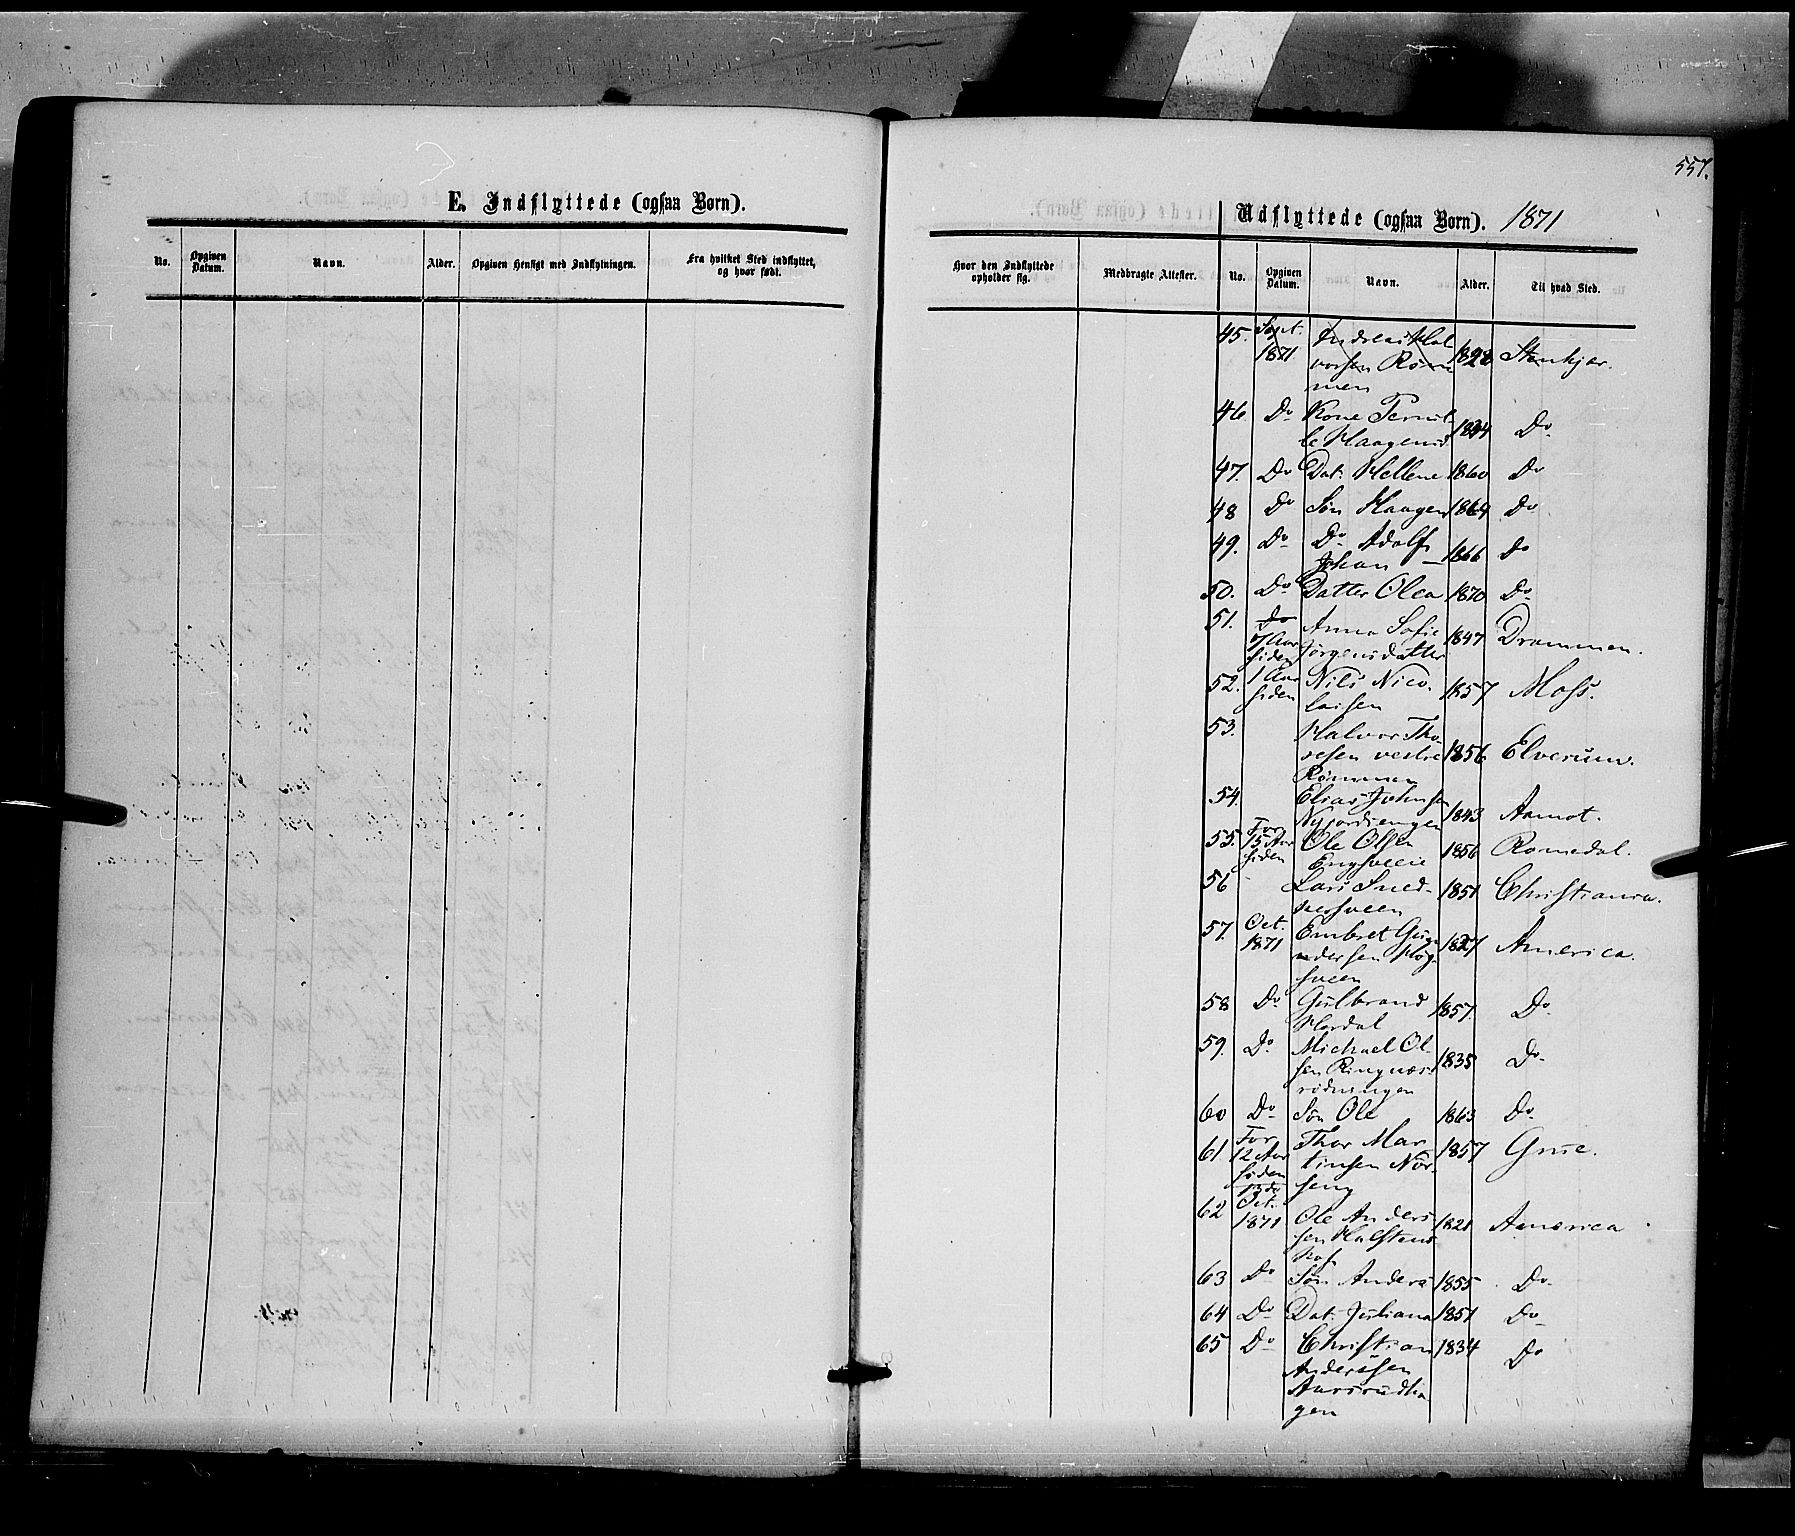 557.
E. Indflyttede (ogsaa Børn).
No. Opgiven Datum. Navn. Alder. Opgiven Hensigt med Indflytningen. Fra hvilket Sted indflyttet, og hvor født.
Udflyttede (ogsaa Børn). 1871
Hvor den Indflyttede opholder sig. Medbragte Attester. No. Opgiven Datum. Navn. Alder. Til hvad Sted.
45. Sept. 1871 Andreas Hal
vorsen Røm 1828 Stenkjær.
men
46 Do Kone Pernil
le Haagensd 1834 Do
47. Do Dat. Hellene 1860 Do
48 Do Søn Haagen 1864 Do
49. Do Do Adolf
Johan 1866 Do
50. Do Datter Olea 1870 Do
51. Do Anna Sofie
7 Aar siden Jørgensdatter 1847 Drammen.
52. 1 Aar siden Nils Nico.
laisen 1857 Moss.
53. Halvor Tho
resen vestre 1856 Elverum.
Rømmen
54. Elias Johnsen
Nyjordsengen 1843 Aamot.
55. For 15 Aar siden Ole Olsen
1856 Romedal.
56 Lars Sned-
kersveen 1851 Christiania.
57. Oct. 1871 Embret Gun
dersen Høg 1827 America.
sveen
58 Do Gulbrand
1857. Do
59. Do Michael Ol
sen Ringnæs 1835 Do
rødningen
60 Do Søn Ole 1863 Do
61 For 12 Aar siden Thor Mar
tinsen Nor 1857 Grue.
seng
62 13de Oct. 1871 Ole Anders
sen Halstens 1821 America
hof
63 Do Søn Anders 1855 Do
64 Do Dat. Juliana 1851 Do
65 Do Christian 1834 Do
Anderssen
Aursrudha
gen